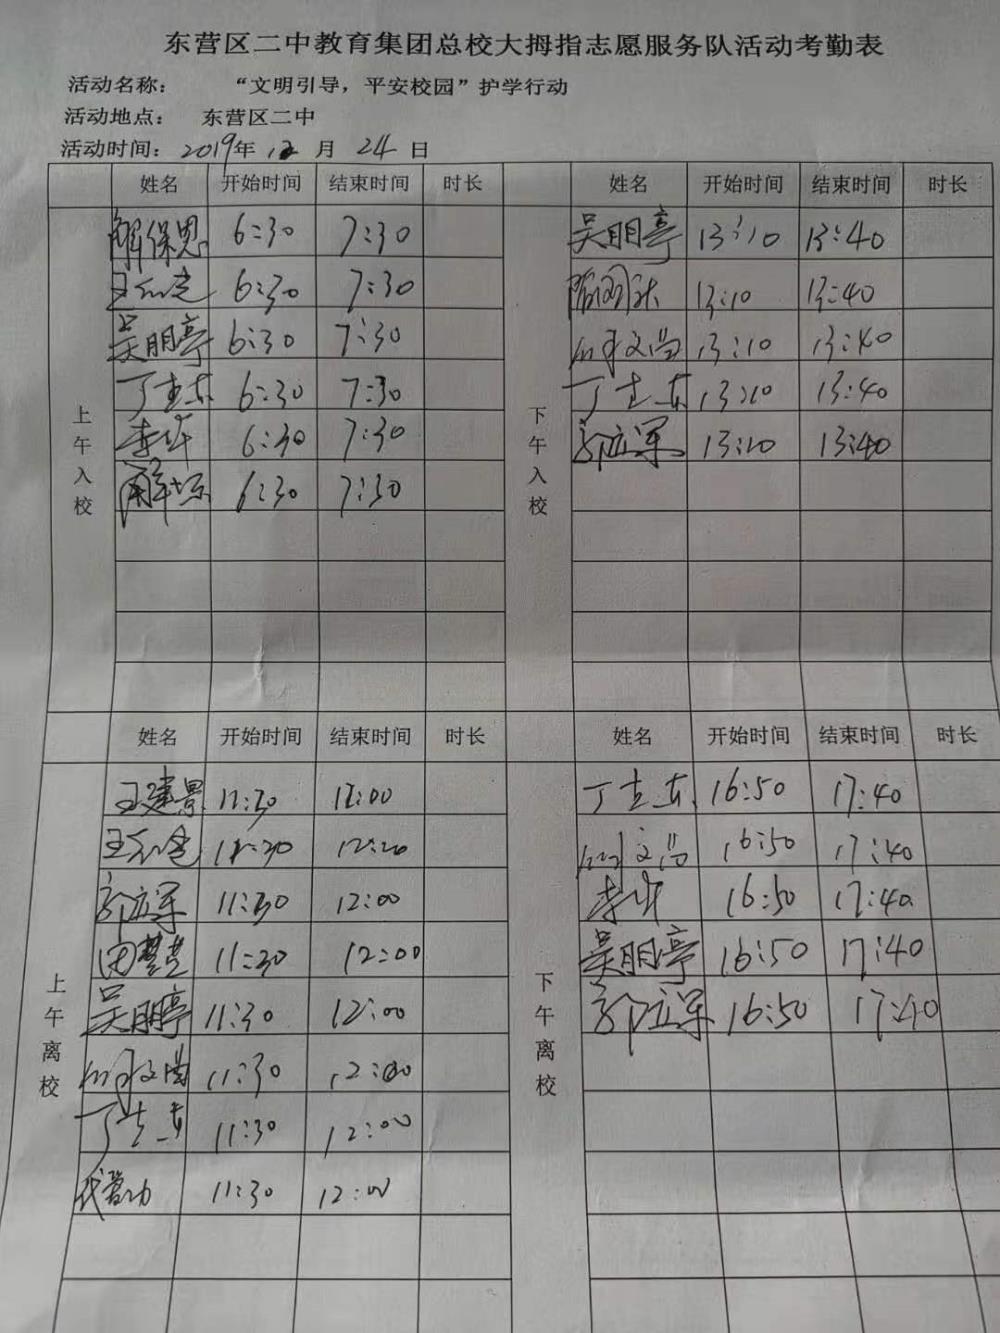 东营区二中教育集团总校大拇指志愿服务队活动考勤表
活动名称： “文明引导，平安校园”护学行动
活动地点： 东营区二中
活动时间：2019年12月24日
姓名 开始时间 结束时间 时长 姓名 开始时间 结束时间 时长
上午入校
解保恩 6:30 7:30
6:30 7:30
吴明亭 6:30 7:30
丁志东 6:30 7:30
李华 6:30 7:30
解 6:30 7:30
下午入校
吴明亭 13:10 13:40
13:10 13:40
文尚 13:10 13:40
丁志东 13:10 13:40
郭立军 13:10 13:40
姓名 开始时间 结束时间 时长 姓名 开始时间 结束时间 时长
上午离校
王建景 11:30 12:00
11:30
郭立军 11:30 12:00
田慧慧 11:30 12:00
吴明亭 11:30 12:00
11:30 12:00
丁志东 11:30 12:00
11:30 12:00
下午离校
丁志东 16:50 17:40
文尚 16:50 17:40
李华 16:50 17:40
吴明亭 16:50 17:40
郭立军 16:50 17:40